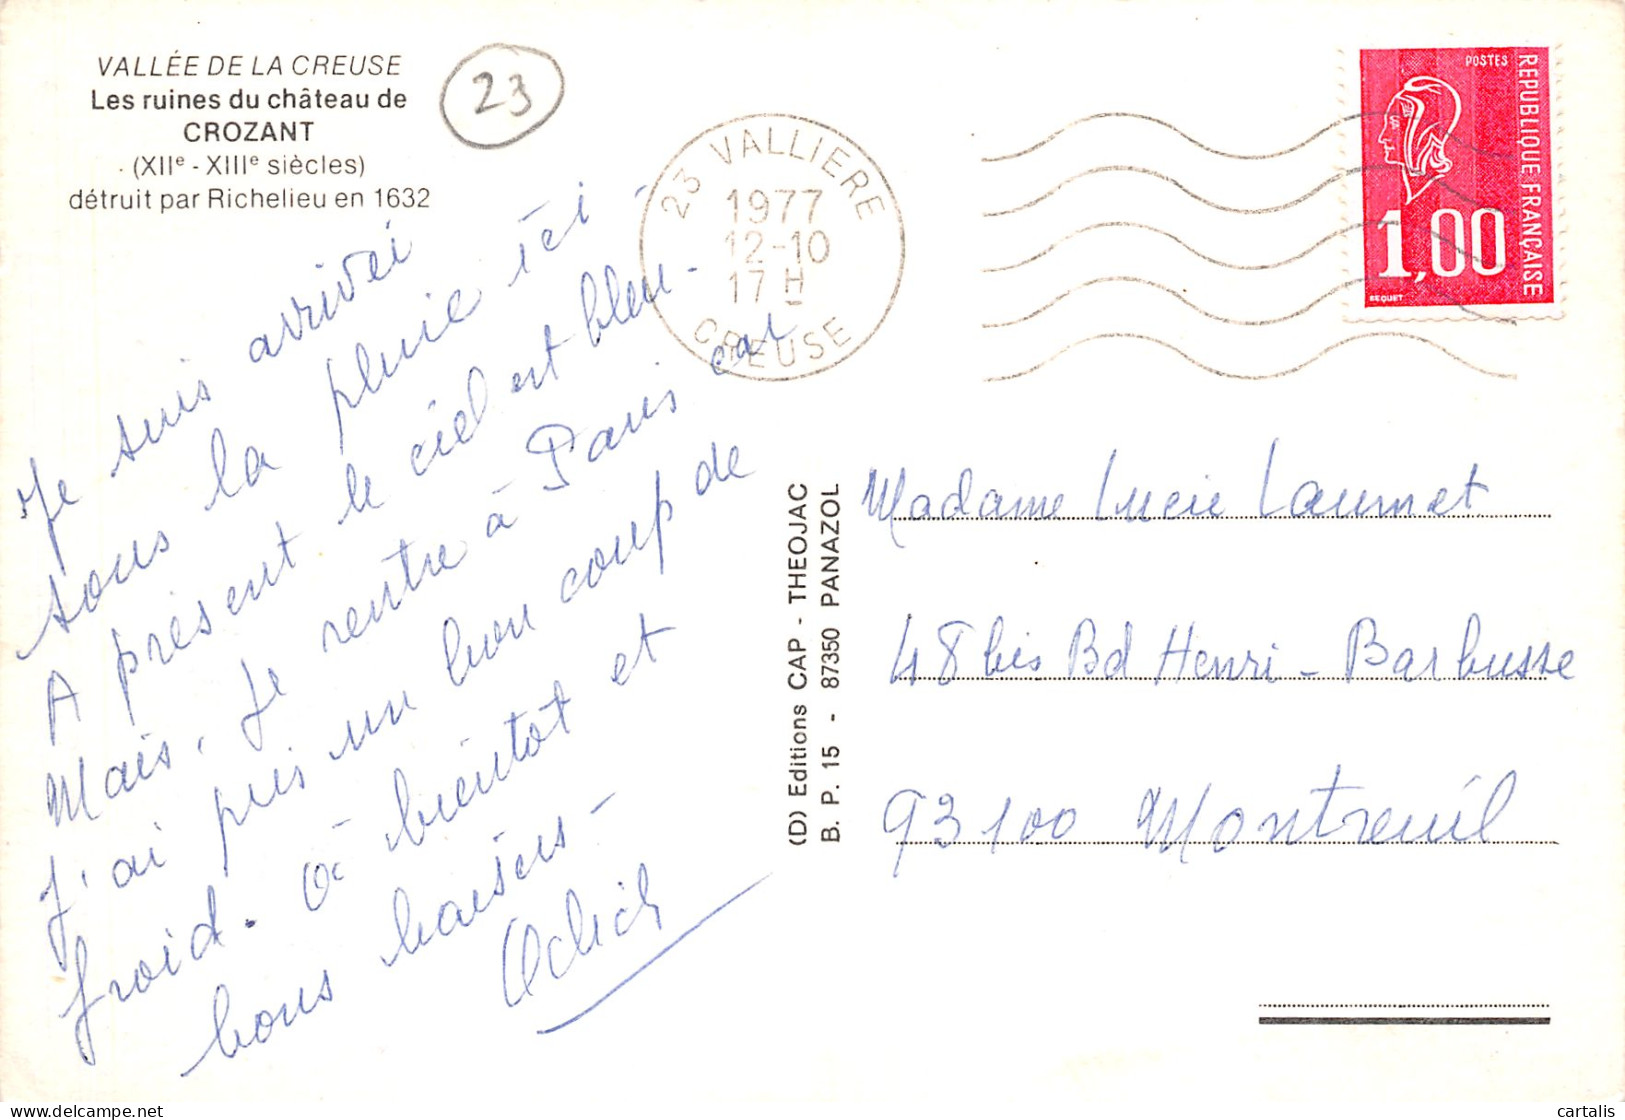 VALLÉE DE LA CREUSE
Les ruines du château de
CROZANT
(XIIe - XIIIe siècles)
détruit par Richelieu en 1632
23
23 VALLIERE
1977
12-10
17 H
CREUSE
POSTES
REPUBLIQUE FRANÇAISE
1,00
BEQUET
Je suis arrivei
sous la pluie ici
A présent le ciel est bleu.
Mais, Je rentre à Paris car
J'ai pris un bon coup de
froid. à bientot et
bons baisers -
(D) Editions CAP - THEOJAC
B. P. 15 - 87350 PANAZOL
Madame Lucie Laumet
48 bis Bd Henri - Barbusse
93100 Montreuil
cartalis